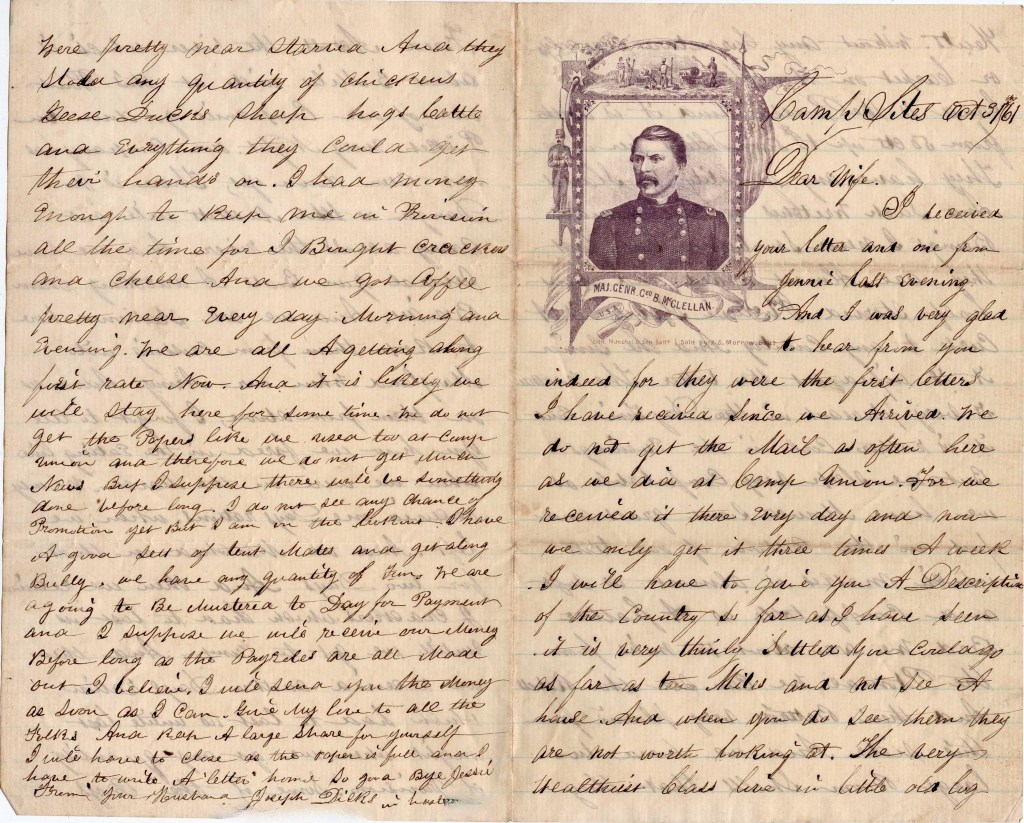 Camp Sites Oct 31st/61
Dear Wife.
I received
your letter and one from
Jennie last evening
And I was very glad
to hear from you
indeed for they were the first letters
I have received Since we Arrived. We
do not get the Mail as often here
as we did at Camp Union. For we
received it there Evry day and now
we only get it three times A week
. I will have to give you A Description
of the Country So far as I have seen
it is very thinly Settled You Could go
as far as ten Miles and not See A
house. And when you do See them they
are not worth looking at. The very
Wealthiest Class live in little old log
MAJ. GENR. GEO B. McCLELLAN
were pretty near Starved And they
any quantity of Chickens
Geese Ducks Sheep hogs Cattle
and Everything they Could get
their hands on. I had money
Enough to Keep me in Provision
all the time for I Bought Crackers
and Cheese And we got Coffee
pretty near Every day Morning and
Evening. We are all A getting along
first rate Now. And it is likely we
will Stay here for Some time. We do not
get the Papers like we used too at Camp
Union and therefore we do not get Much
News. But I Suppose there will be Something
done before long. I do not see any Chance of
Promotion yet But I am in the . I have
A good sett of tent Mates and get along
Bully. we have any quantity of Fun. We are
agoing to Be Mustered to Day for Payment
and I Suppose we will receive our Money
Before long as the Payroles are all Made
out I believe. I will send you the Money
as Soon as I Can. Give My love to all the
Folks And Keep A large Share for yourself
I will have to Close as the paper is full and I
have to write A "letter" home So good Bye Jessie
From Your Husband Joseph Dilks in